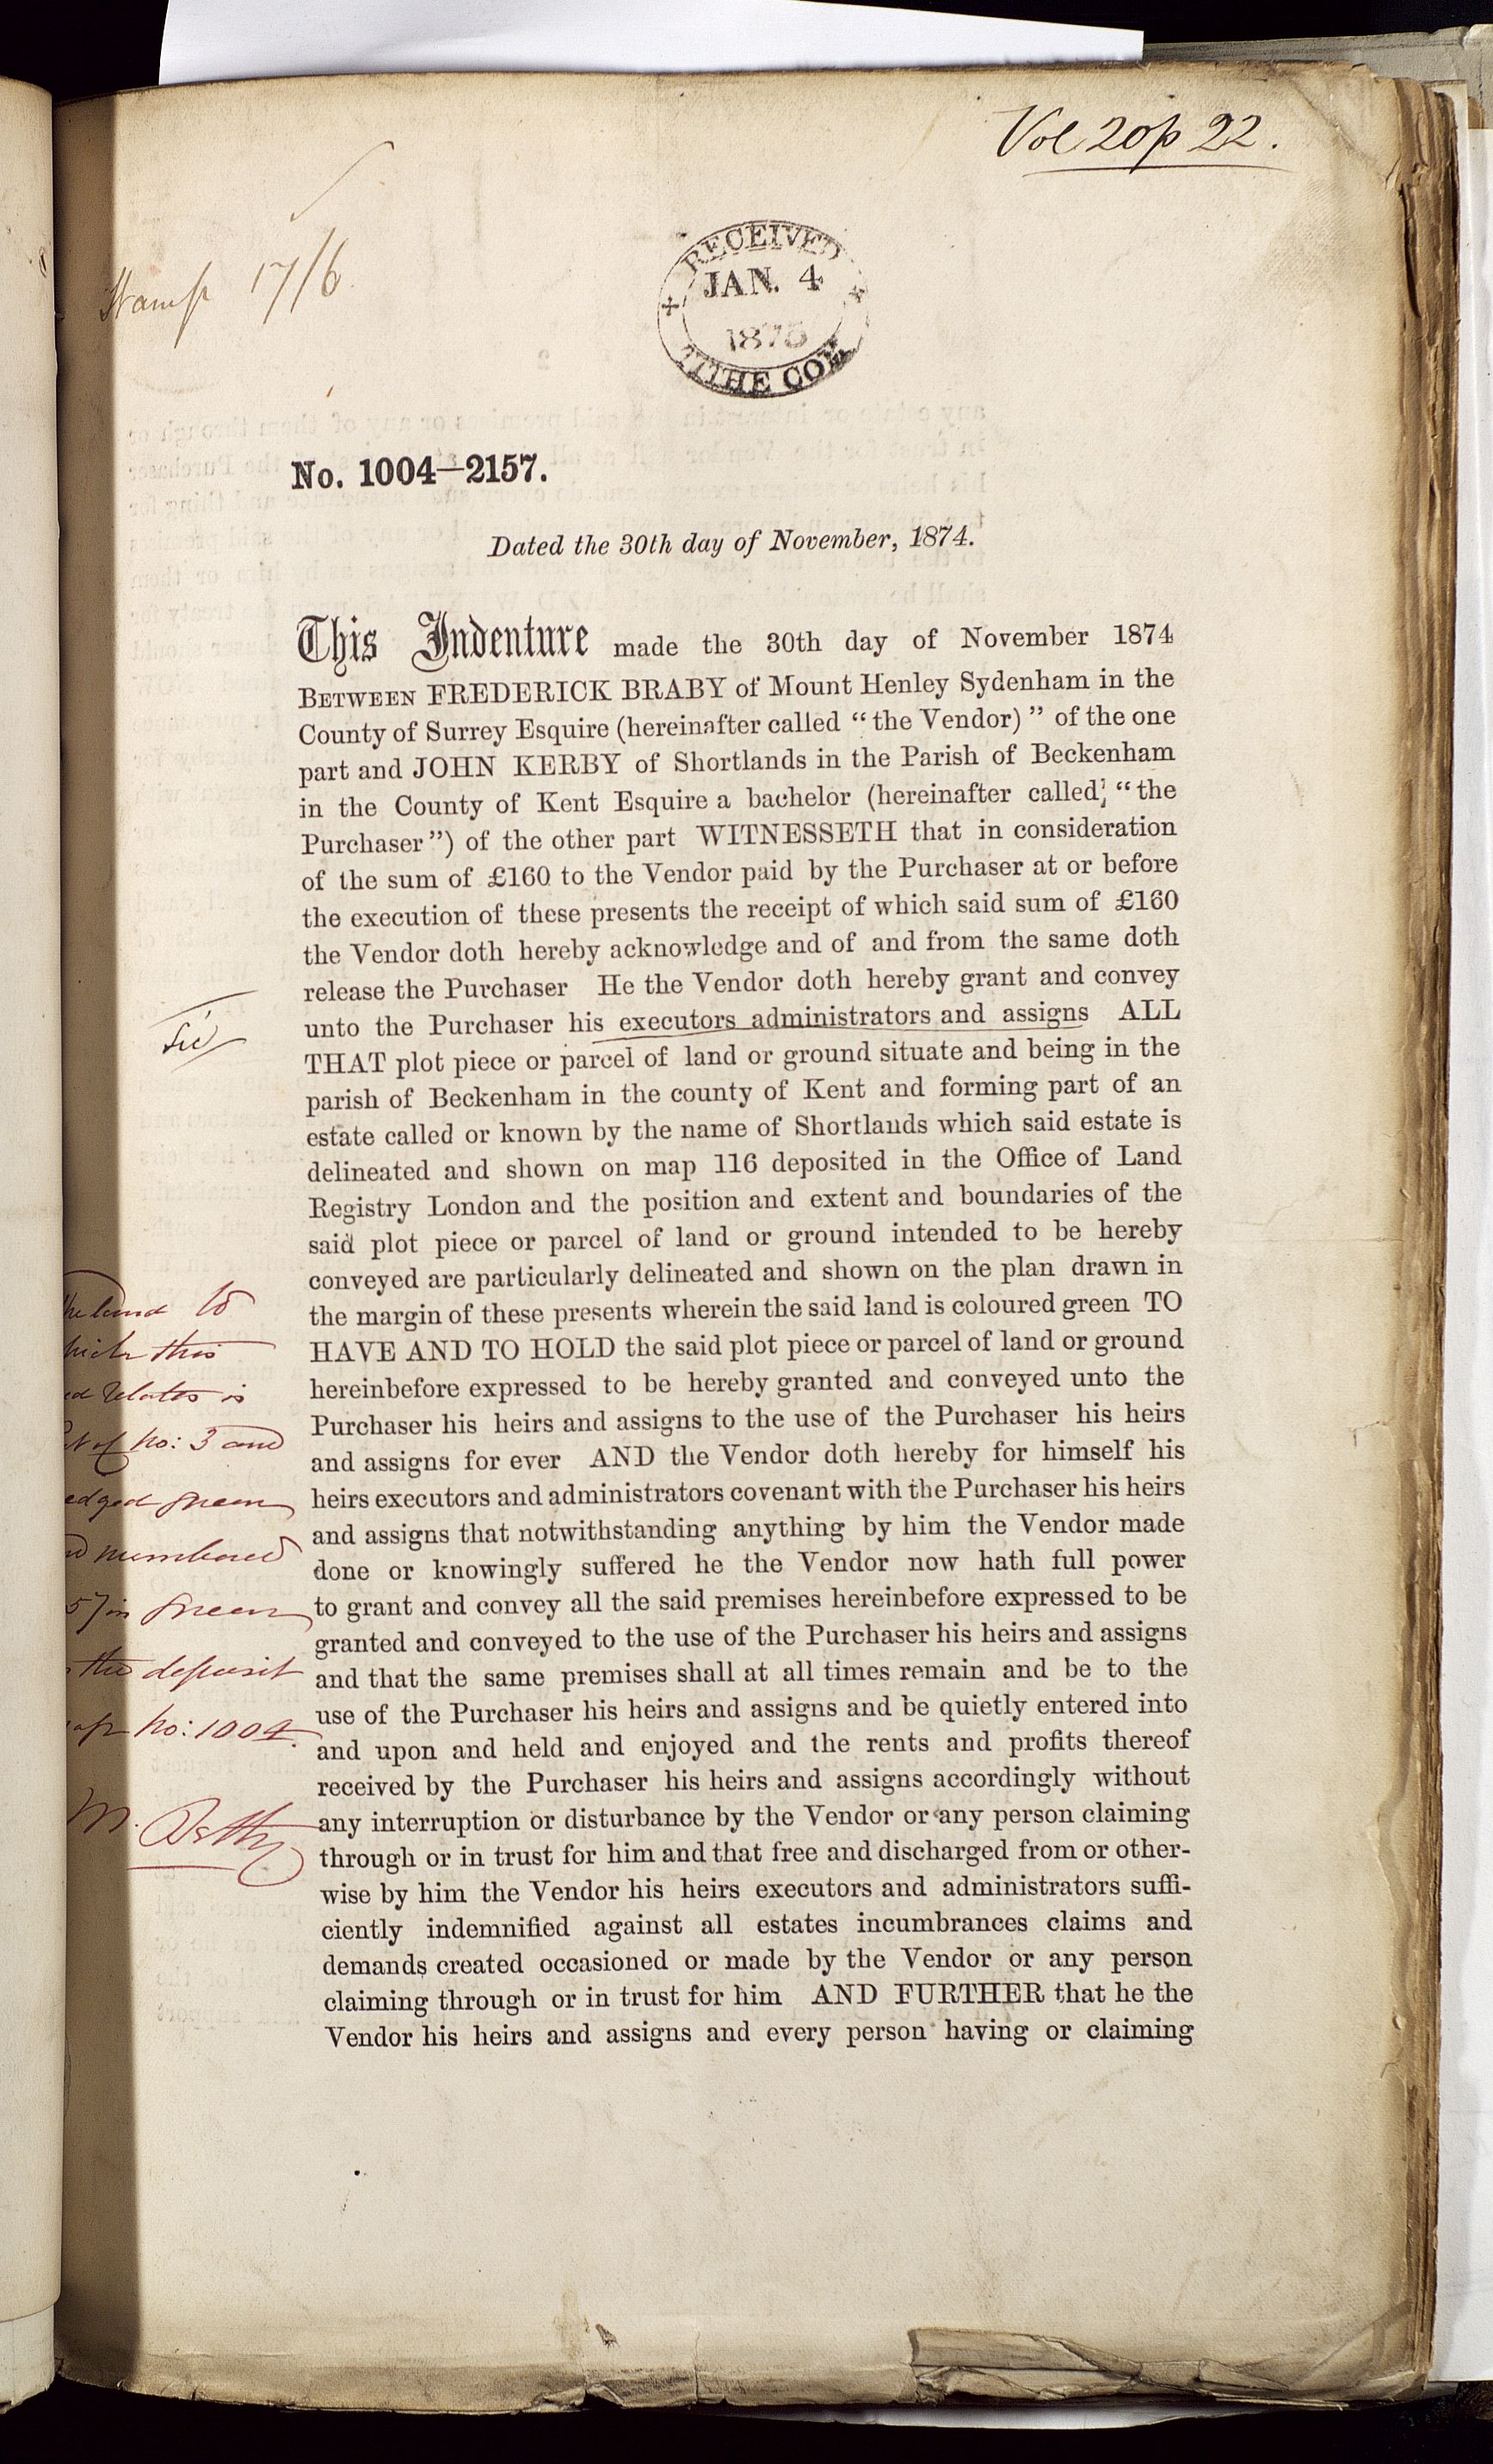 Vol 20 p 22.
Stamp 17/6
RECEIVED
JAN. 4
1875
TITHE COM
No. 1004—2157.
Dated the 30th day of November, 1874.
This Indenture made the 30th day of November 1874
BETWEEN FREDERICK BRABY of Mount Henley Sydenham in the
County of Surrey Esquire (hereinafter called “the Vendor)” of the one
part and JOHN KERBY of Shortlands in the Parish of Beckenham
in the County of Kent Esquire a bachelor (hereinafter called “the
Purchaser”) of the other part WITNESSETH that in consideration
of the sum of £160 to the Vendor paid by the Purchaser at or before
the execution of these presents the receipt of which said sum of £160
the Vendor doth hereby acknowledge and of and from the same doth
release the Purchaser He the Vendor doth hereby grant and convey
unto the Purchaser his executors administrators and assigns ALL
Sic
THAT plot piece or parcel of land or ground situate and being in the
parish of Beckenham in the county of Kent and forming part of an
estate called or known by the name of Shortlands which said estate is
delineated and shown on map 116 deposited in the Office of Land
Registry London and the position and extent and boundaries of the
said plot piece or parcel of land or ground intended to be hereby
conveyed are particularly delineated and shown on the plan drawn in
the margin of these presents wherein the said land is coloured green TO
HAVE AND TO HOLD the said plot piece or parcel of land or ground
hereinbefore expressed to be hereby granted and conveyed unto the
Purchaser his heirs and assigns to the use of the Purchaser his heirs
and assigns for ever AND the Vendor doth hereby for himself his
heirs executors and administrators covenant with the Purchaser his heirs
and assigns that notwithstanding anything by him the Vendor made
done or knowingly suffered he the Vendor now hath full power
to grant and convey all the said premises hereinbefore expressed to be
granted and conveyed to the use of the Purchaser his heirs and assigns
and that the same premises shall at all times remain and be to the
use of the Purchaser his heirs and assigns and be quietly entered into
and upon and held and enjoyed and the rents and profits thereof
received by the Purchaser his heirs and assigns accordingly without
any interruption or disturbance by the Vendor or any person claiming
through or in trust for him and that free and discharged from or other-
wise by him the Vendor his heirs executors and administrators suffi-
ciently indemnified against all estates incumbrances claims and
demands created occasioned or made by the Vendor or any person
claiming through or in trust for him AND FURTHER that he the
Vendor his heirs and assigns and every person having or claiming
the land to
hich this
ed relates is
of no: 3 and
edged green
numbered
57 in green
the deposit
ap no: 1004.